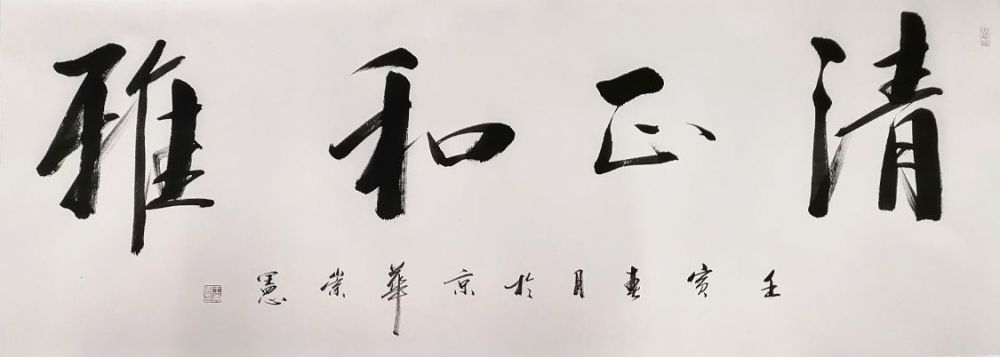 清正和雅
壬寅春月於京華崇憲